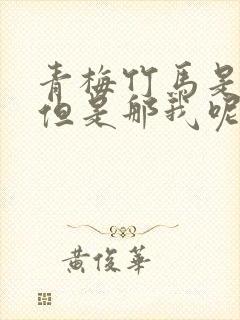 青梅竹马是
但是那我呢
黄俊華